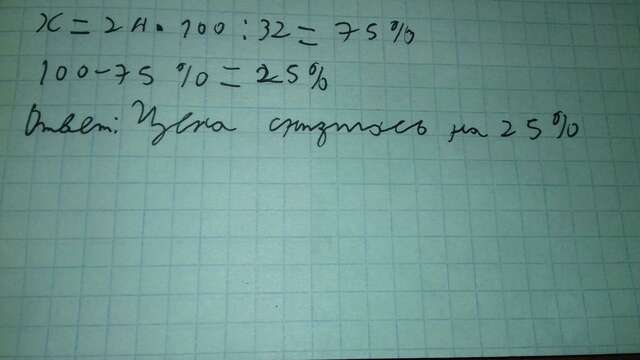 x = 24 · 100 : 32 = 75%
100-75% = 25%
Ответ: Цена снизилась на 25%